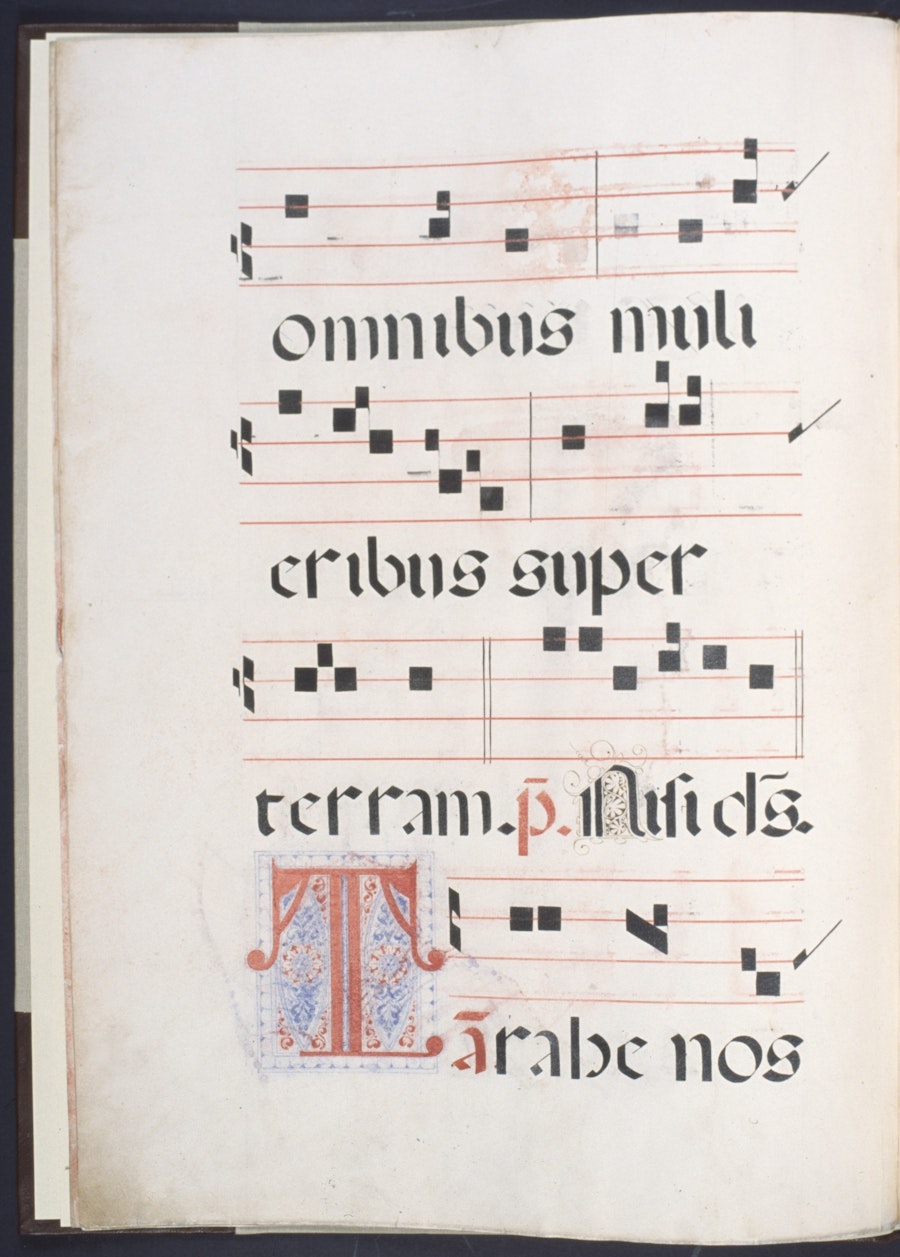 omnibus muli
eribus super
terram. p̄. Nisi dn̄s.
T ā. rahe nos